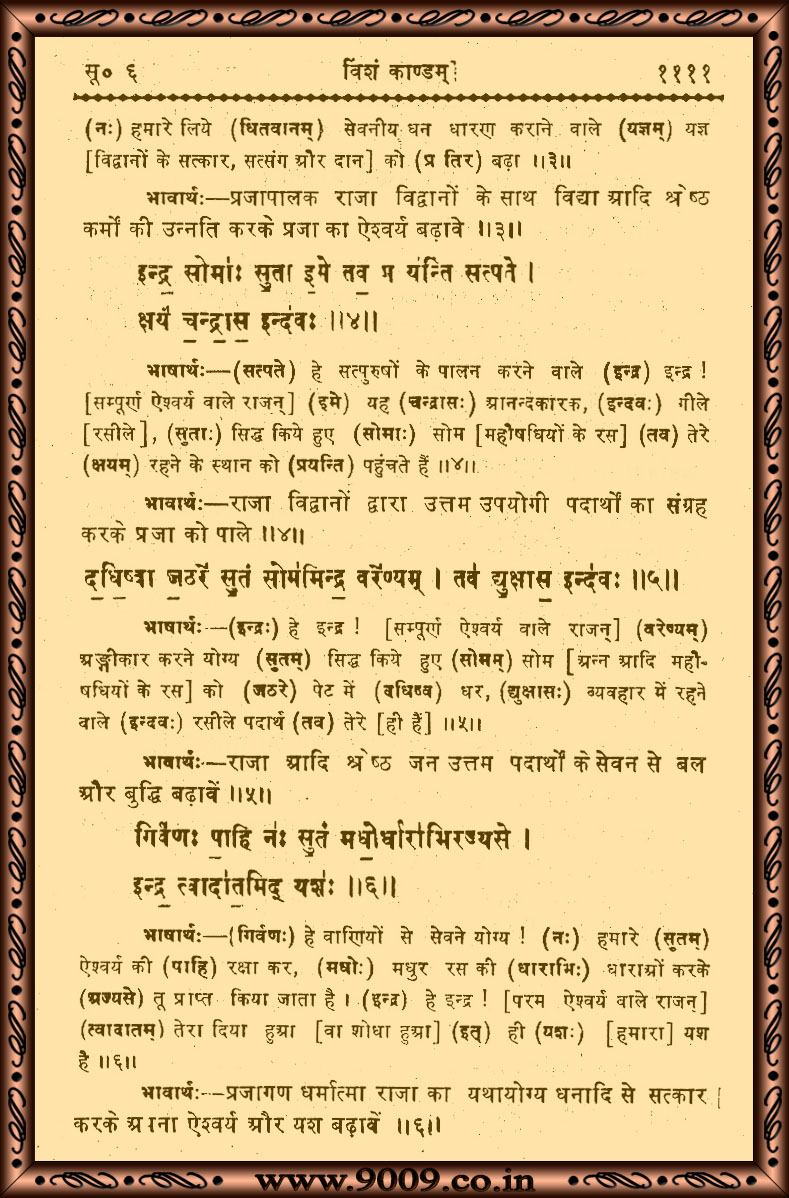 सू० ६ विंशं काण्डम् ११११
(नः) हमारे लिये (धितवानम्) सेवनीय धन धारण कराने वाले (यज्ञम्) यज्ञ
[विद्वानों के सत्कार, सत्संग और दान] को (प्र तिर) बढ़ा ॥३॥
भावार्थः—प्रजापालक राजा विद्वानों के साथ विद्या आदि श्रेष्ठ
कर्मों की उन्नति करके प्रजा का ऐश्वर्य बढ़ावे ॥३॥
इन्द्र॒ सोमाः॑ सु॒ता इ॒मे तव॒ प्र य॑न्ति सत्पते ।
क्षयं॑ च॒न्द्रास॒ इन्द॑वः ॥४॥
भाषार्थः—(सत्पते) हे सत्पुरुषों के पालन करने वाले (इन्द्र) इन्द्र !
[सम्पूर्ण ऐश्वर्य वाले राजन्] (इमे) यह (चन्द्रासः) आनन्दकारक, (इन्दवः) गीले
[रसीले], (सुताः) सिद्ध किये हुए (सोमाः) सोम [महौषधियों के रस] (तव) तेरे
(क्षयम्) रहने के स्थान को (प्रयन्ति) पहुंचते हैं ॥४॥
भावार्थः—राजा विद्वानों द्वारा उत्तम उपयोगी पदार्थों का संग्रह
करके प्रजा को पाले ॥४॥
द॒धि॒ष्वा ज॒ठरे॑ सु॒तं सोम॑मिन्द्र॒ वरे॑ण्यम् । तव॑ द्यु॒क्षास॒ इन्द॑वः ॥५॥
भाषार्थः—(इन्द्रः) हे इन्द्र ! [सम्पूर्ण ऐश्वर्य वाले राजन्] (वरेण्यम्)
अङ्गीकार करने योग्य (सुतम्) सिद्ध किये हुए (सोमम्) सोम [अन्न आदि महौ-
षधियों के रस] को (जठरे) पेट में (दधिष्व) धर, (द्युक्षासः) व्यवहार में रहने
वाले (इन्दवः) रसीले पदार्थ (तव) तेरे [ही हैं] ॥५॥
भावार्थः—राजा आदि श्रेष्ठ जन उत्तम पदार्थों के सेवन से बल
और बुद्धि बढ़ावें ॥५॥
गिर्व॑णः पा॒हि नः॑ सु॒तं मधो॒र्धारा॑भिरज्यसे ।
इन्द्र॒ त्वादा॑त॒मिद् यशः॑ ॥६॥
भाषार्थः—(गिर्वणः) हे वाणियों से सेवने योग्य ! (नः) हमारे (सुतम्)
ऐश्वर्य की (पाहि) रक्षा कर, (मधोः) मधुर रस की (धाराभिः) धाराओं करके
(अज्यसे) तू प्राप्त किया जाता है । (इन्द्र) हे इन्द्र ! [परम ऐश्वर्य वाले राजन्]
(त्वादातम्) तेरा दिया हुआ [वा शोधा हुआ] (इत्) ही (यशः) [हमारा] यश
है ॥६॥
भावार्थः—प्रजागण धर्मात्मा राजा का यथायोग्य धनादि से सत्कार
करके अपना ऐश्वर्य और यश बढ़ावें ॥६॥
www.9009.co.in